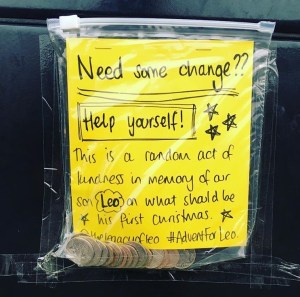 Need some change??
Help yourself!
This is a random act of
kindness in memory of our
son Leo on what should be
his first christmas.
@thelegacyofleo #AdventForLeo